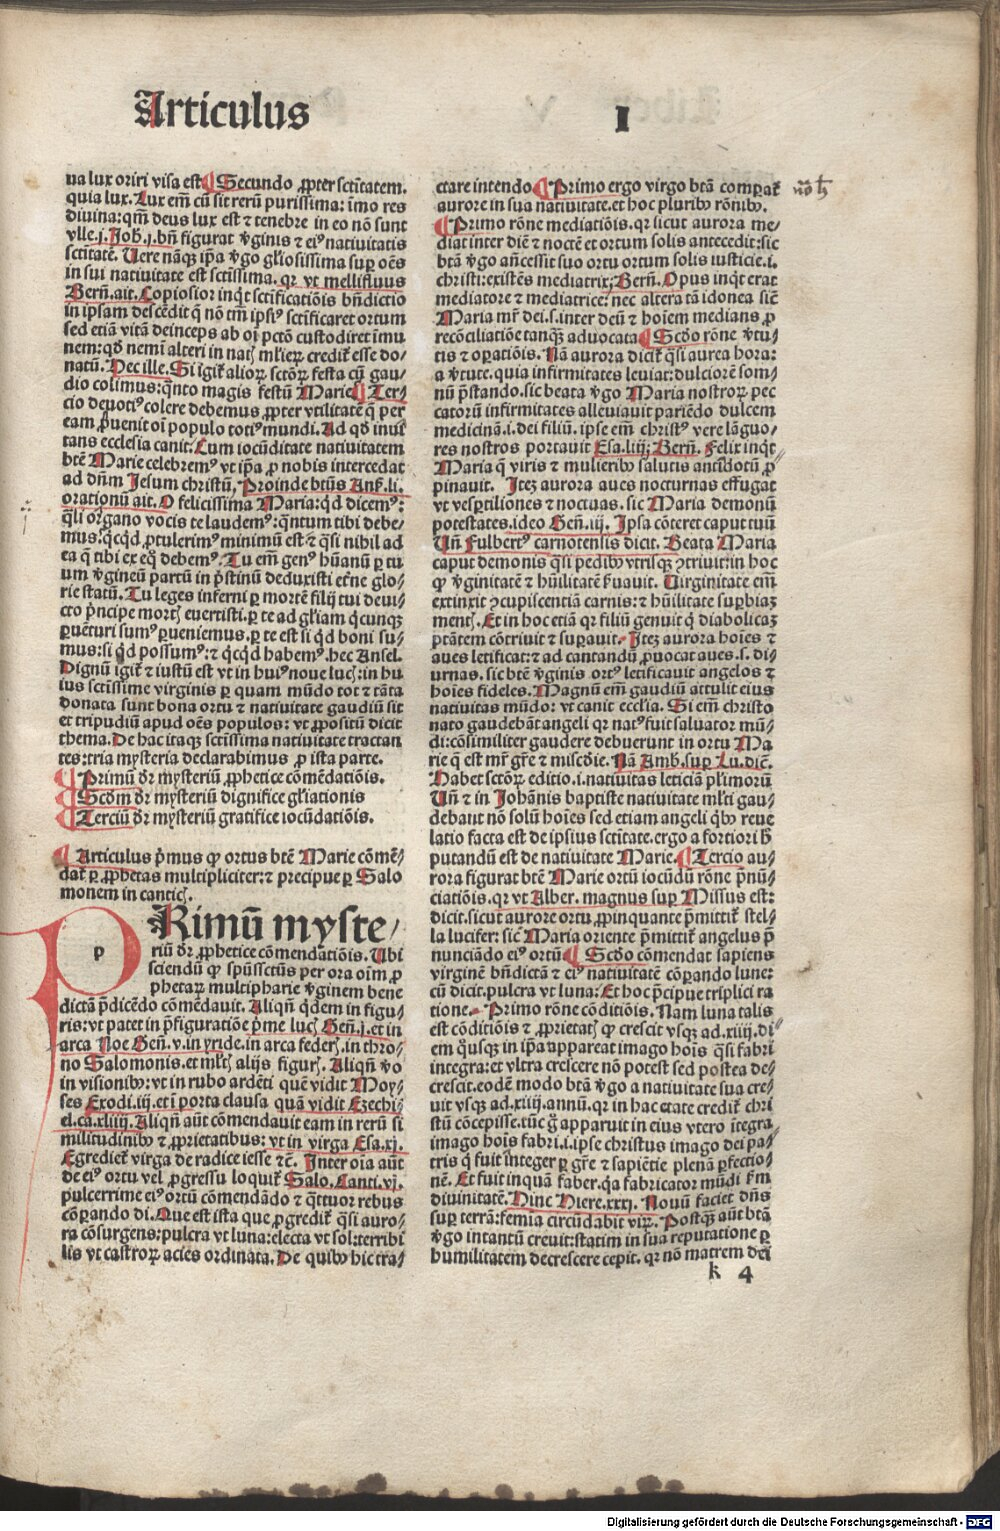 Articulus I
ua lux oriri visa est ¶ Secundo ꝓpter sctitatem.
quia lux. Lux em̄ cū sit rerū purissima: īmo res
diuina: qm̄ deus lux est ⁊ tenebre in eo nō sunt
vlle. j. Joh̄. j. bn̄ figurat v̓ginis ⁊ ei⁹ natiuitatis
sctitatē. Uere nāqꝫ ip̄a v̓go gl̓iosissima suꝑ oēs
in sui natiuitate est sctīssima. qꝛ vt mellifluus
Bern̄. ait. Copiosior inqͥt sctīficatiōis bn̄dictio
in ipsam descēdit q̄ nō tm̄ ipsi⁹ sctīficaret ortum
sed etiā vitā deinceps ab oī pctō custodiret īmu
nem: qd̓ nemī alteri in natꝭ ml̓ieꝝ credit̓ esse do⸗
natū. Hec ille. Si igit̓ alioꝝ sctōꝝ festa cū gau⸗
dio colimus: q̄nto magis festū Marie ¶ Ter⸗
cio deuoti⁹ colere debemus ꝓpter vtilitatē q̄ per
eam ꝓuenit oī populo toti⁹ mundi. Ad qd̓ inuī
tans ecclesia canit: Cum iocūditate natiuitatem
btē Marie celebrem⁹ vt ip̄a ꝓ nobis intercedat
ad dn̄m Jesum christū. Proinde btūs Ans. li.
orationū ait. O felicissima Maria: qd̓ dicem⁹:
q̄li organo vocis te laudem⁹: q̄ntum tibi debe⸗
mus: qͥcqͥd ꝓtulerim⁹ minimū est ⁊ q̄si nihil ad
ea q̄ tibi ex eq̄ debem⁹. Tu em̄ gen⁹ hūanū ꝑ tu
um v̓gineū partū in pͥstinū deduxisti etn̄e glo⸗
rie statū. Tu leges inferni ꝑ mortē filij tui deui⸗
cto pͥncipe mortꝭ euertisti. ꝑ te ad gl̓iam qͥcunqꝫ
ꝑuēturi sum⁹ ꝑueniemus. ꝑ te est si qͥd boni su⸗
mus: si qͥd possum⁹: ⁊ qͥcqͥd habem⁹. hec Ansel.
Dignū igit̓ ⁊ iustū est vt in hui⁹ noue lucꝭ: in hu
ius sctīssime virginis ꝑ quam mūdo tot ⁊ tāta
donata sunt bona ortu ⁊ natiuitate gaudiū sit
et tripudiū apud oēs populos: vt ꝓpositū dicit
thema. De hac itaqꝫ sctīssima natiuitate tractan
tes: tria mysteria declarabimus ꝓ ista parte.
¶ Primū dr̄ mysteriū ꝓphetice cōmēdatiōis.
¶ Scdm̄ dr̄ mysteriū dignifice gl̓iationis
¶ Terciū dr̄ mysteriū gratifice iocūdatiōis.
¶ Articulus pͥmus ꝙ ortus btē Marie cōmē⸗
dat̓ ꝑ ꝓphetas multipliciter: ⁊ precipue ꝑ Salo
monem in canticꝭ.
PRimū myste⸗
riū dr̄ ꝓphetice cōmendatiōis. Ubi
sciendū ꝙ spūssctūs per ora oīm ꝓ
phetaꝝ multipharie v̓ginem bene
dictā pͥdicēdo cōmēdauit. Aliqn̄ qͥdem in figu⸗
ris: vt patet in pͥfiguratiōe pͥme lucꝭ Gen̄. j. et in
arca Noe Gen̄. v. in yride. in arca federꝭ. in thro⸗
no Salomonis. et ml̓tꝭ alijs figurꝭ. Aliqn̄ v̓o
in visionibꝫ: vt in rubo ardēti quē vidit Moy⸗
ses Exodi. iij. et ī porta clausa quā vidit Ezechi⸗
el. ca. xliiij. Aliqn̄ aūt cōmendauit eam in rerū si
militudinibꝫ ⁊ ꝓprietatibus: vt in virga Esa. xj.
Egrediet̓ virga de radice iesse ⁊c̄. Inter oīa aūt
de ei⁹ ortu vel ꝓgressu loquit̓ Salo. Canti. vj.
pulcerrime ei⁹ ortū cōmendādo ⁊ qͣttuor rebus
cōꝑando di. Que est ista que ꝓgredit̓ q̄si auro⸗
ra cōsurgens: pulcra vt luna: electa vt sol: terribi
lis vt castroꝝ acies ordinata. De quibꝫ hic tra⸗
ctare intendo ¶ Primo ergo virgo btā comꝑat̓
aurore in sua natiuitate. et hoc pluribꝫ rōnibꝫ.
nōtꝫ
¶ Primo rōne mediatiōis. qꝛ sicut aurora me⸗
diat inter diē ⁊ noctē et ortum solis antecedit: sic
btā v̓go an̄cessit suo ortu ortum solis iusticie. i.
christi: existēs mediatrix; Bern̄. Opus inqͥt erat
mediatore ⁊ mediatrice: nec altera tā idonea sic̄
Maria mr̄ dei. s. inter deū ⁊ hoīem medians ꝓ
recōciliatiōe tanqꝫ aduocata ¶ Scd̓o rōne v̓tu⸗
tis ⁊ oꝑatiōis. Nā aurora dicit̓ q̄si aurea hora:
a v̓tute. quia infirmitates leuiat: dulciorē som⸗
nū pͥstando. sic beata v̓go Maria nostroꝝ pec
catorū infirmitates alleuiauit pariēdo dulcem
medicinā. i. dei filiū. ipse em̄ christ⁹ vere lāguo⸗
res nostros portauit Esa. liij; Bern̄. Felix inqͥt
Maria q̄ viris ⁊ mulieribꝫ salutis antidotū ꝓ⸗
pinauit. Itē aurora aues nocturnas effugat
vt vesꝑtiliones ⁊ noctuas. sic Maria demonū
potestates. ideo Gen̄. iij. Ipsa cōteret caput tuū
Un̄ Fulbert⁹ carnotensis dicit. Beata Maria
caput demonis q̄si pedibꝫ vtrisqꝫ ꝯtriuit: in hoc
ꝙ v̓ginitatē ⁊ hūilitatē s̓uauit. Uirginitate em̄
extinxit ꝯcupiscentiā carnis: ⁊ hūilitate suꝑbiaꝫ
mentꝭ. Et in hoc etiā qꝛ filiū genuit q̄ diabolicaꝫ
ptātem cōtriuit ⁊ suꝑauit. Itē aurora hoīes ⁊
aues letificat: ⁊ ad cantandū ꝓuocat aues. s. di⸗
urnas. sic btē v̓ginis ort⁹ letificauit angelos ⁊
hoīes fideles. Magnū em̄ gaudiū attulit eius
natiuitas mūdo: vt canit eccl̓ia. Si em̄ christo
nato gaudebāt angeli qꝛ nat⁹ fuit saluator mū⸗
di: cōsimiliter gaudere debuerunt in ortu Ma
rie q̄ est mr̄ gr̄e ⁊ miscd̓ie. Nā Amb. suꝑ Lu. diē.
Habet sctōꝝ editio. i. natiuitas leticiā pl̓imorū
Un̄ ⁊ in Johānis baptiste natiuitate ml̓ti gau⸗
debant nō solū hoīes sed etiam angeli qͥbꝫ reue
latio facta est de ipsius sctītate. ergo a fortiori h̓
putandū est de natiuitate Marie. ¶ Tercio au⸗
rora figurat btē Marie ortū iocūdū rōne pͥnū⸗
ciatiōis. qꝛ vt Alber. magnus suꝑ Missus est:
dicit. sicut aurore ortu ꝓpinquante pͥmittit̓ stel⸗
la lucifer: sic̄ Maria oriente pͥmittit̓ angelus pͥ
nunciādo ei⁹ ortū ¶ Scd̓o cōmendat sapiens
virginē bn̄dictā ⁊ ei⁹ natiuitatē cōꝑando lune:
cū dicit. pulcra vt luna: Et hoc pͥcipue triplici ra
tione. Primo rōne cōditiōis. Nam luna talis
est cōditiōis ⁊ ꝓprietatꝭ ꝙ crescit vsqꝫ ad. xiiij. di⸗
em qͥusqꝫ in ip̄a appareat imago hoīs q̄si fabri
integra: et vltra crescere nō potest sed postea de⸗
crescit. eodē modo btā v̓go a natiuitate sua cre⸗
uit vsqꝫ ad. xiiij. annū. qꝛ in hac etate credit̓ chri
stū cōcepisse. tūc ḡ apparuit in eius vtero ītegra
imago hoīs fabri. i. ipse christus imago dei pa⸗
tris q̄ fuit integer ꝑ gr̄e ⁊ sapiētie plenā ꝑfectio⸗
nē. Et fuit inquā faber. qͣa fabricator mūdi s̓m
diuinitatē. Hinc Hiere. xxxj. Nouū faciet dn̄s
suꝑ terrā: femīa circūdabit viꝝ. Postqꝫ aūt btā
v̓go intantū creuit: statim in sua reputatione ꝑ
humilitatem decrescere cepit. qꝛ nō matrem dei
k 4
Digitalisierung gefördert durch die Deutsche Forschungsgemeinschaft - DFG